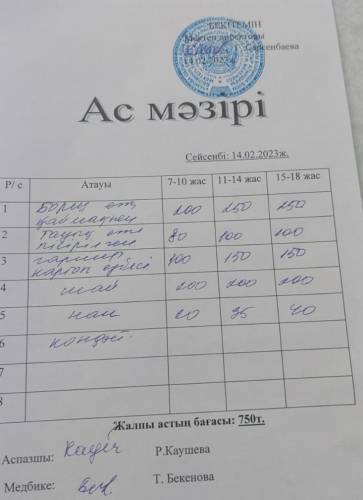 БЕКІТЕМІН
Мектеп директоры
Г. Сәрсенбаева
14.02.2023ж
Ас мәзірі
Сейсенбі: 14.02.2023ж.
Р/ с Атауы 7-10 жас 11-14 жас 15-18 жас
1 Борщ ет қаймақпен 200 250 250
2 Тауық еті пісірілген 80 100 100
3 гарнир картоп езбесі 100 150 150
4 шай 200 200 200
5 нан 20 35 40
6 кондит.
7
8
Жалпы астың бағасы: 750т.
Аспазшы: Р.Каушева
Медбике: Т. Бекенова